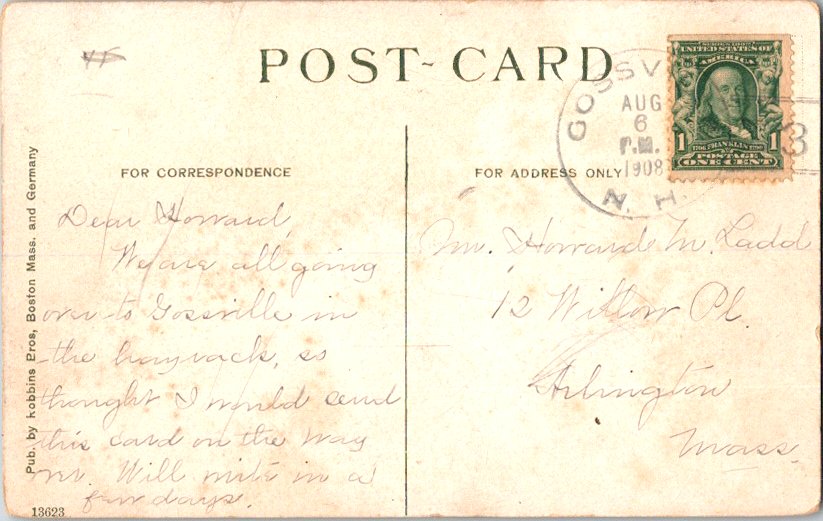 POST-CARD
GOSSV
AUG
6
P.M.
1908
N. H.
SERIES 1902
UNITED STATES OF
AMERICA
1 1706 FRANKLIN 1790 1
POSTAGE
ONE CENT
3
FOR CORRESPONDENCE
FOR ADDRESS ONLY
Dear Howard,
We are all going
over to Gossville in
the hayrack, so
thought I would send
this card on the way
over. Will write in a
few days.
Mr. Howard M. Ladd
12 Willow Pl.
Arlington
Mass.
Pub. by Robbins Bros, Boston Mass. and Germany
13623